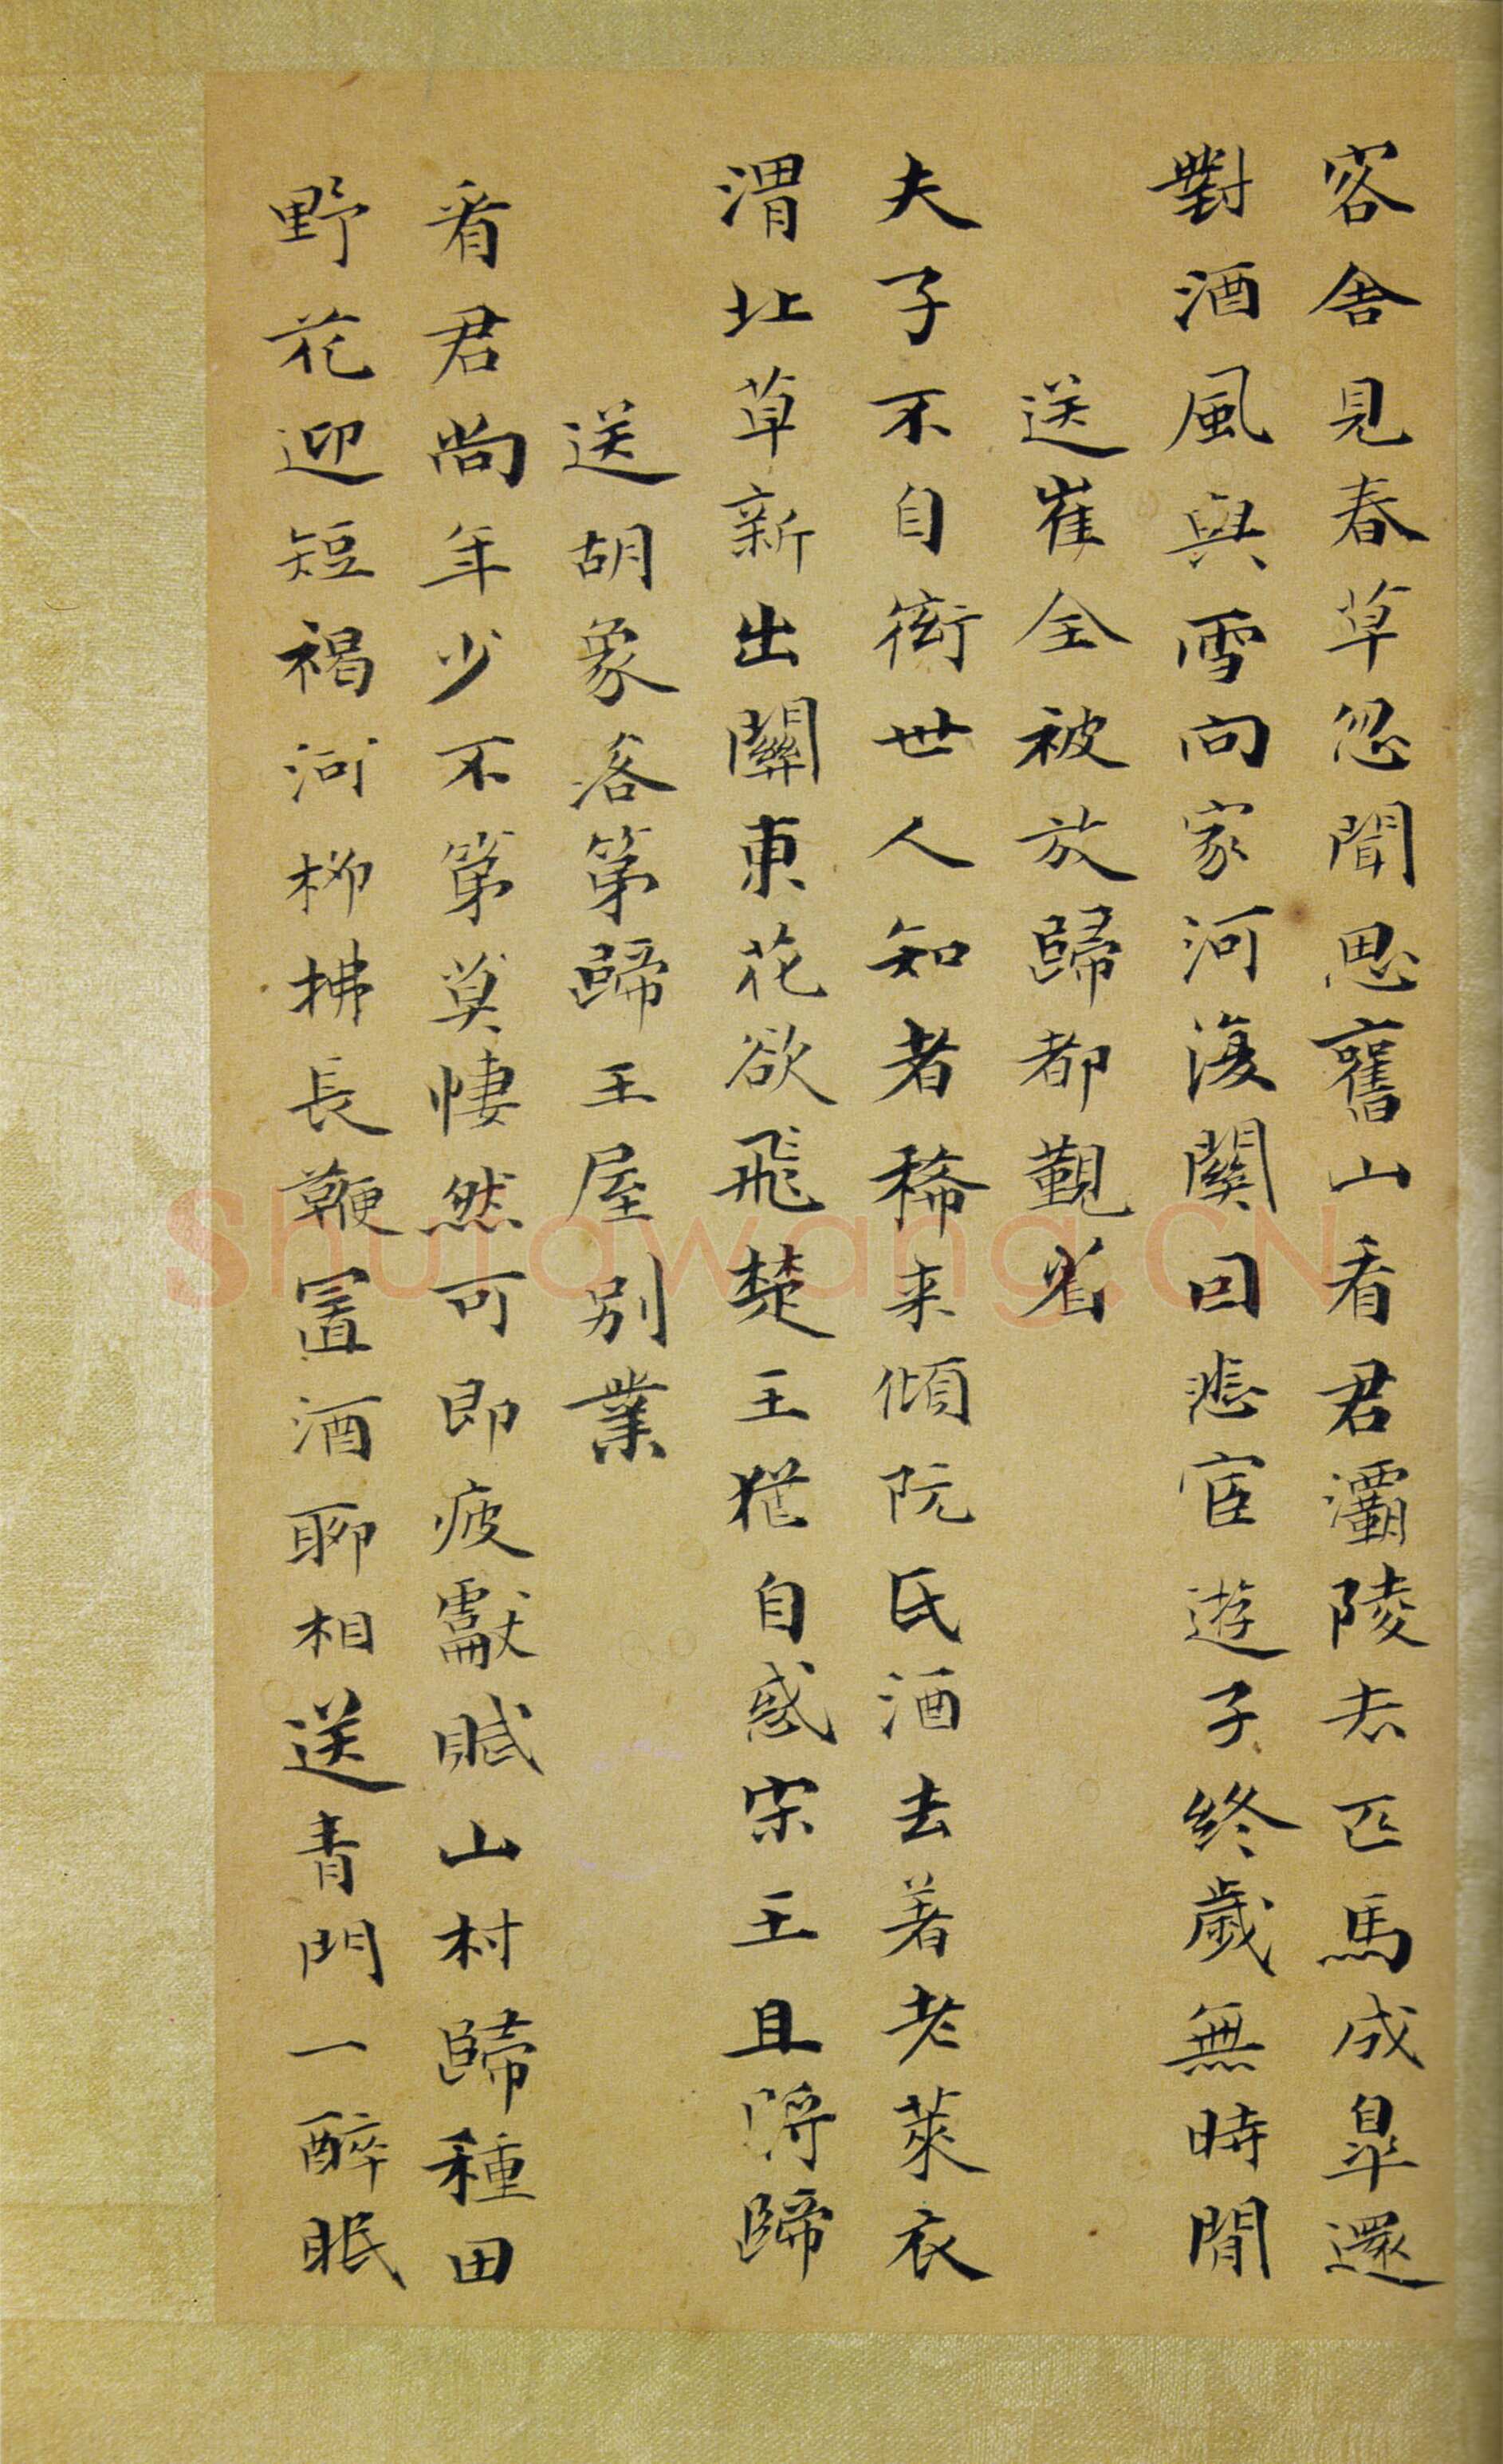 客舍見春草忽聞思舊山看君灞陵去匹馬成臯還
對酒風與雪向家河復關回悲宦遊子終歲無時閒
送崔全被放歸都覲省
夫子不自衒世人知者稀来傾阮氏酒去著老萊衣
渭北草新出關東花欲飛楚王猶自惑宋玉且將歸
送胡象落第歸王屋別業
看君尚年少不第莫悽然可即疲獻賦山村歸種田
野花迎短褐河柳拂長鞭置酒聊相送青門一醉眠
Shufawang.CN